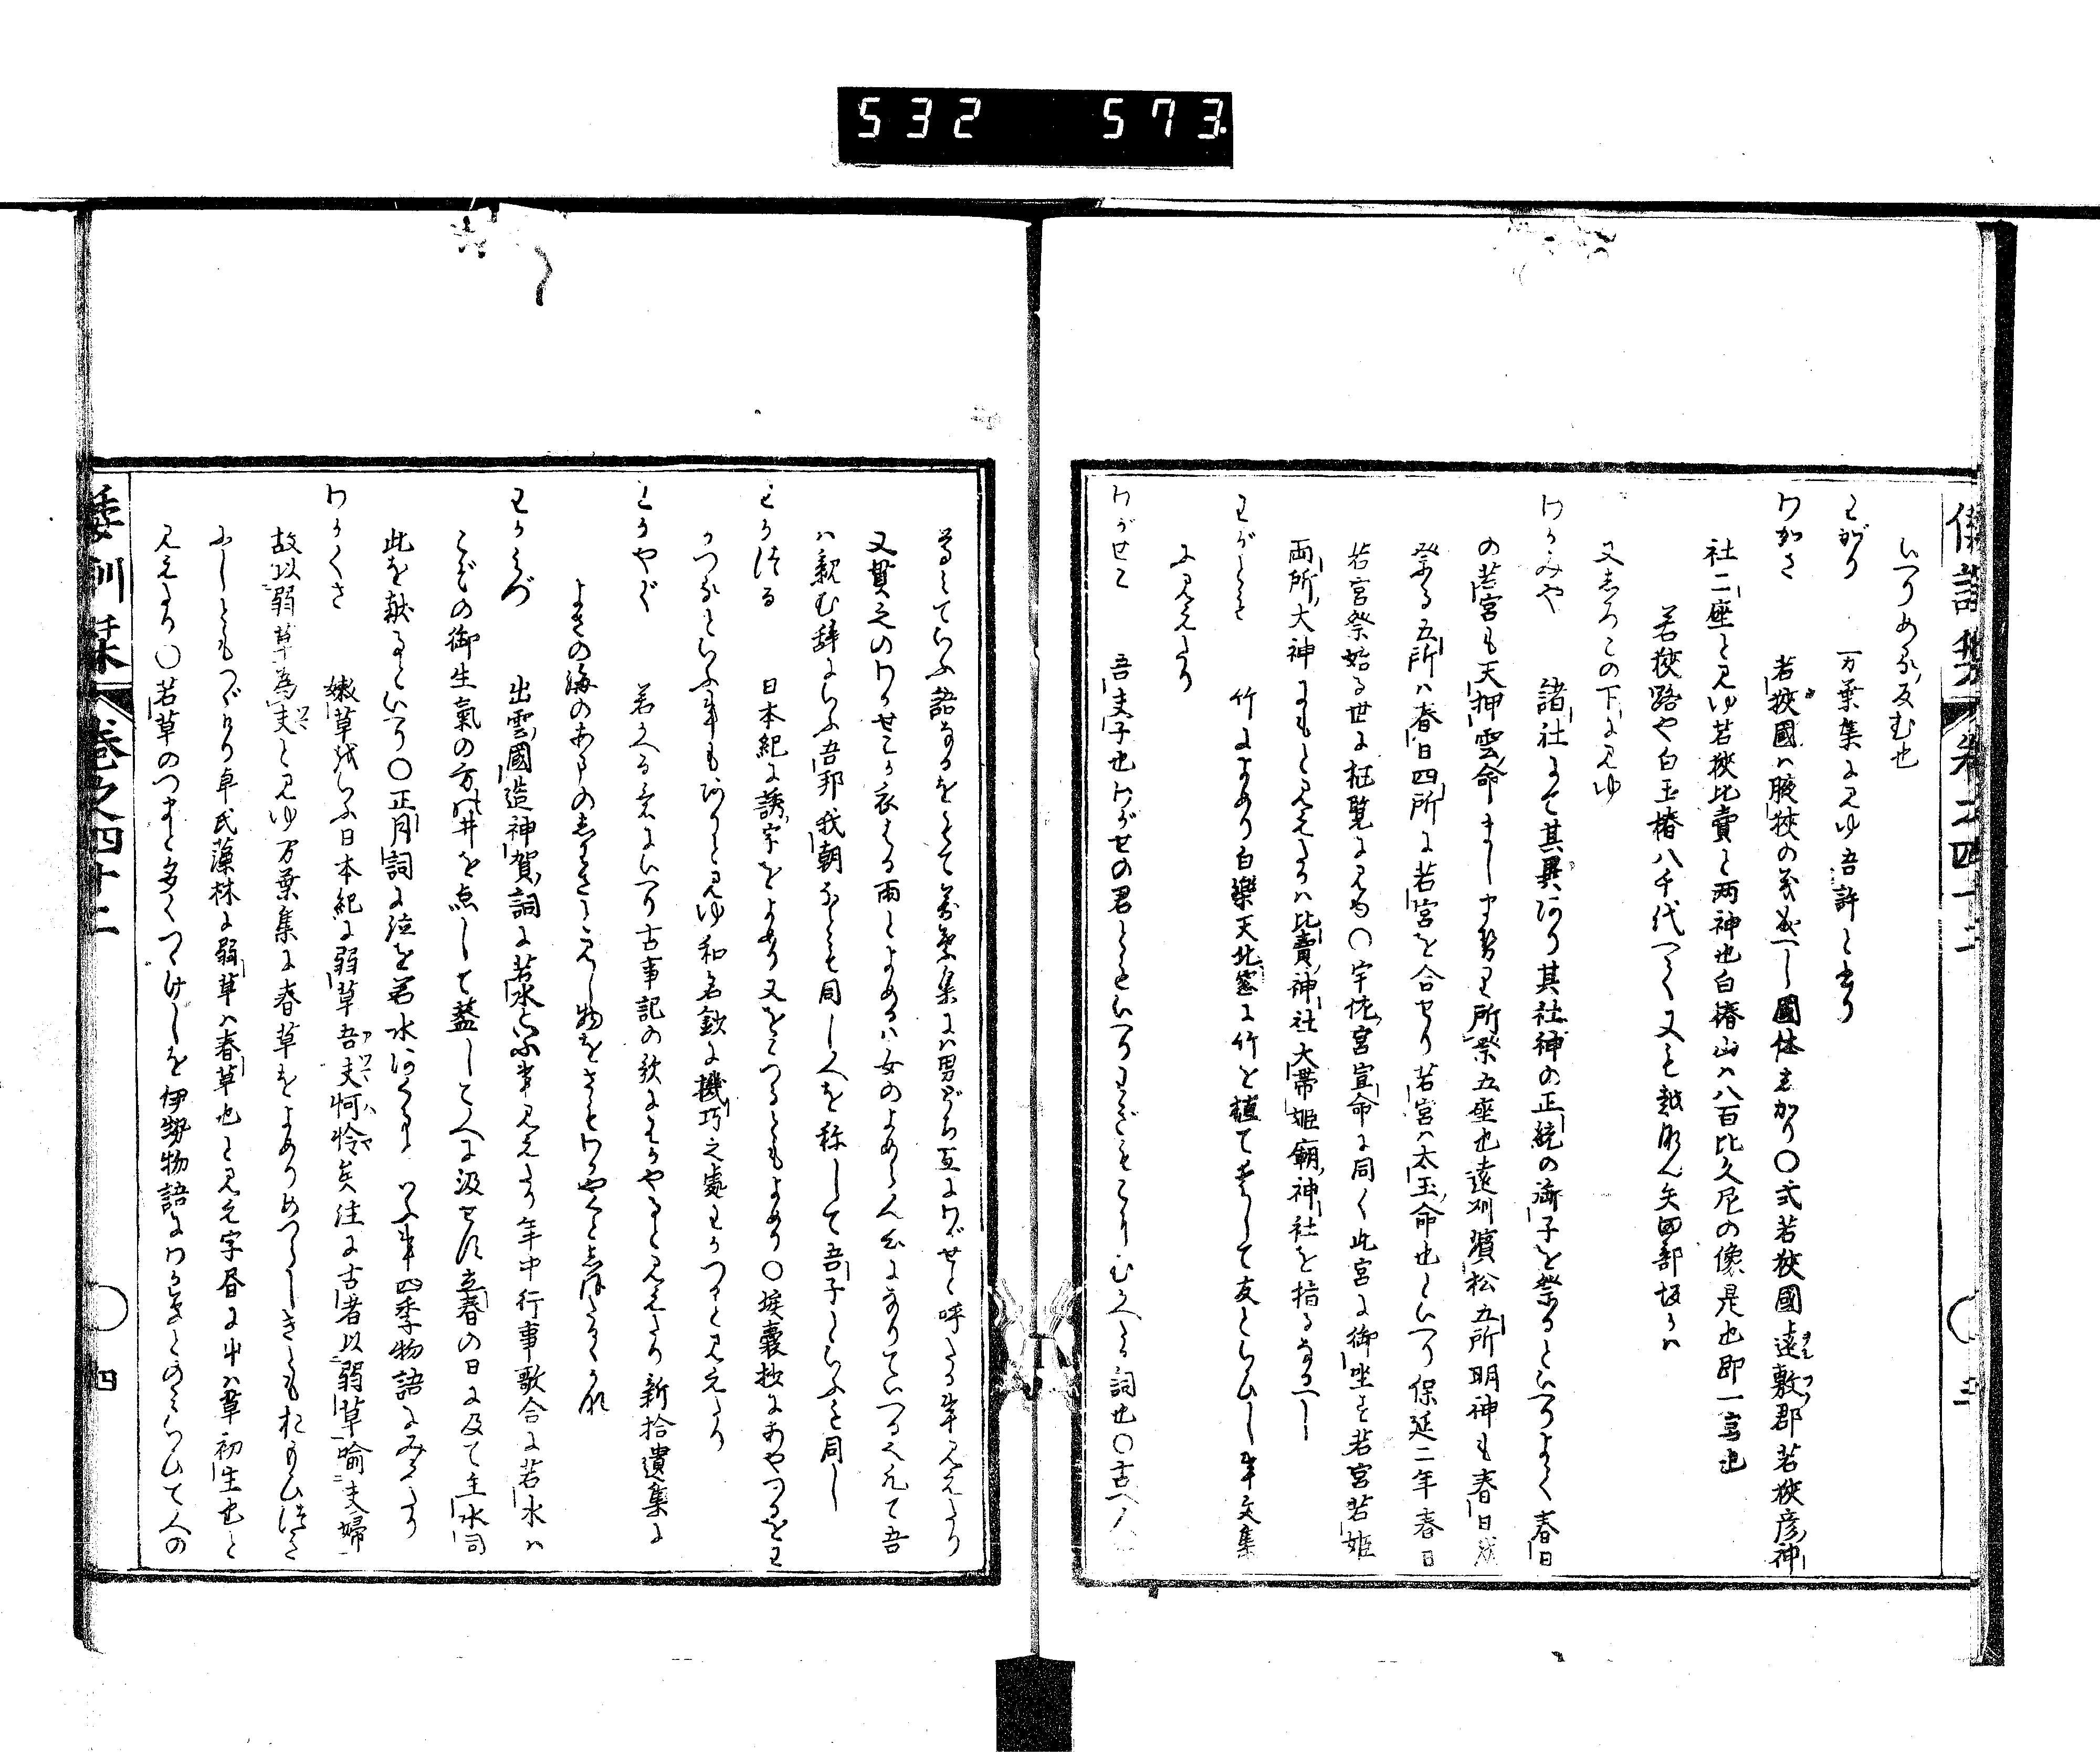 532 573
倭訓栞 巻之四十二 三
いへりめる反む也
わがり 万葉集に見ゆ吾許と書り
わかさ 若狭國ハ腋狭の義成へし國体しかり〇式若狭國遠敷郡若狭彦神
社二座と見ゆ若狭比賣と両神也白椿山ハ八百比久尼の像是也即一宮也
若狭路や白玉椿八千代へて又も越なん矢田部坂かハ
又しろこの下に見ゆ
わかみや 諸社にて其異あり其社神の正統の御子を祭るといへりよて春日
の若宮も天押雲命ましませり所祭五座也遠州濱松五所明神も春日
祭る五所ハ春日四所に若宮を合せり若宮ハ太玉命也といへり保延二年春日
若宮祭始る世に枉覧に見ゆ〇宇佐宮宣命に同く此宮に御坐す若宮若姫
両所大神にもと見えたるハ比賣神社大帯姫廟神社を指るなるへし
わがとも 竹によめり白樂天北窓に竹を植て愛して友といひし事文集
に見えたり
わがせこ 吾夫子也わがせの君ともいへりわぎもこにむかへる詞也〇古へハ
等していふ語なるをもて萬葉集にハ男どち互にわがせと呼たる事見えたり
又貫之のわがせこが衣はる雨とよめるハ女のよめらん心になりていへる也凡て吾
ハ親む辞にいふ吾邦我朝なとも同し人を称して吾子といふも同し
わかつる 日本紀に誘字をよめり又をこつるともよめり〇埃嚢抄にあやつるをわ
かつるといふ事もありと見ゆ和名鈔に機巧之處わかつりと見えたり
わかやぐ 若かへる意にいへり古事記の歌にわかやると見えたり新拾遺集に
よさの海のあまのしわさとみし物をさもわかやくとしほたるゝかな
わかみづ 出雲國造神賀詞に若水といふ事見えたり年中行事歌合に若水ハ
こぞの御生氣の方の井を点して蓋して人に汲せす立春の日に及て主水司
此を献るといへり〇正月詞に注を若水にくむといふ事四季物語にみえたり
わかくさ 嫩草をいふ日本紀に弱草吾夫𪫧怜矣注に古者以弱草喩夫婦
故以弱草為夫と見ゆ万葉集に春草をよめりめつらしきともおもひつまさ
ふしともつゞけり卓氏藻林に弱草ハ春草也と見え字昼に屮ハ草初生也と
見えたり〇若草のつまと多くつゝけしを伊勢物語にわかきとのみいひて人の
倭訓栞 巻之四十二 四